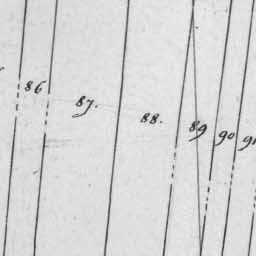 86
87.
88.
89
90
91